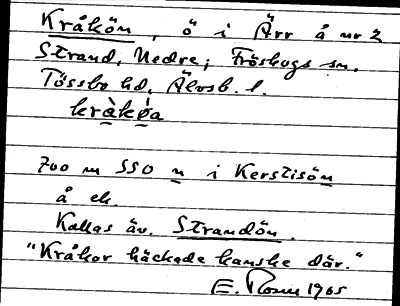 Kråkön, ö i Ärr å nr 2
Strand, Nedre; Fröskogs sn.
Tössbo hd, Älvsb. l.
kràkǿa
700 m SSO n i Kerstisön
å ek.
Kallas äv. Strandön.
"Kråkor häckade kanske där."
E. Rosén 1965